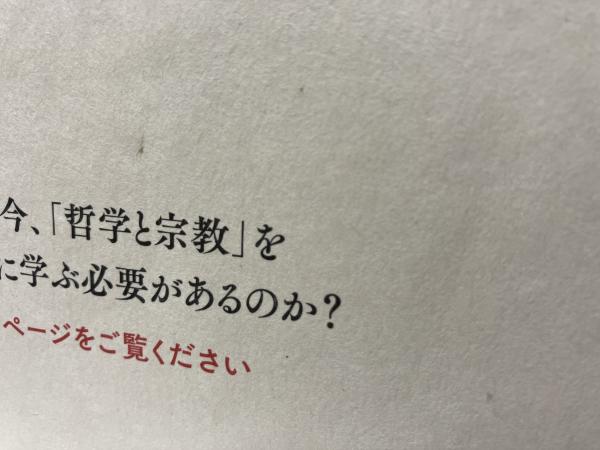 今、「哲学と宗教」を
に学ぶ必要があるのか?
ページをご覧ください